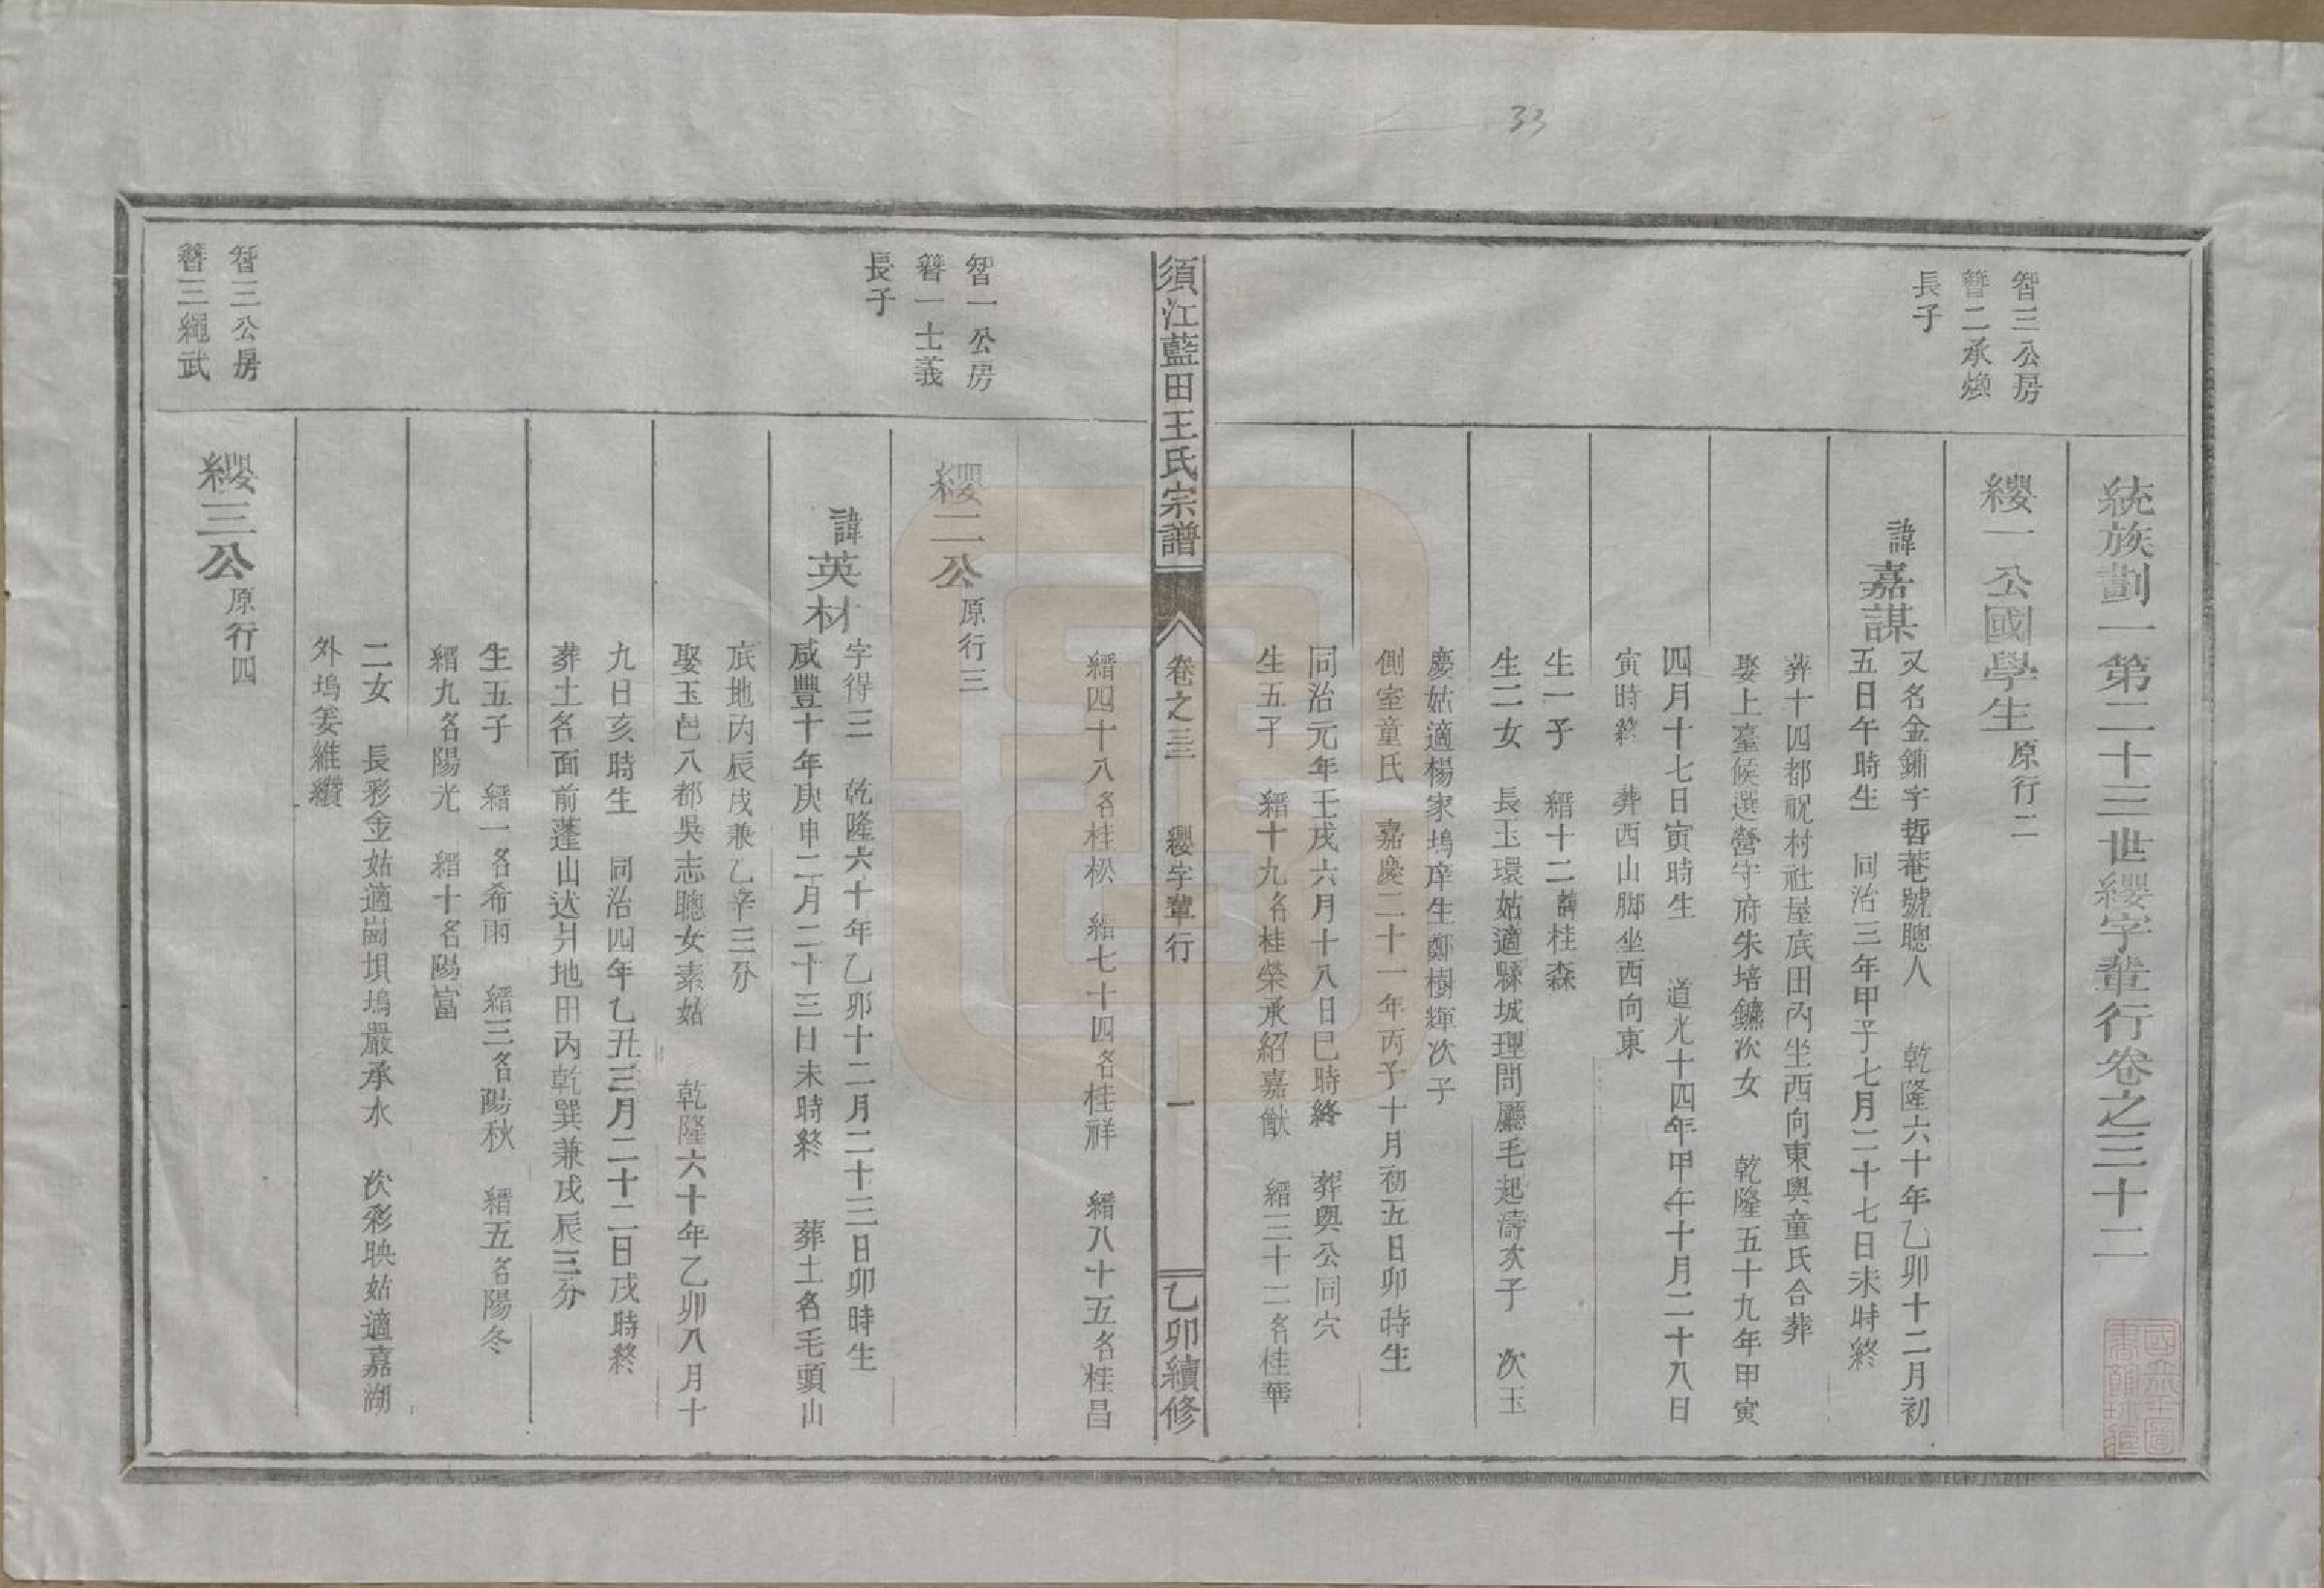 33
統族劃一第二十三世纓字輩行卷之三十二
智三公房
簪二承煥
長子
纓一公國學生原行二
諱嘉謀
又名金鏽字哲菴號聰人　乾隆六十年乙卯十二月初
五日午時生　同治三年甲子七月二十七日未時終
葬十四都祝村社屋底田內坐西向東與童氏合葬
娶上臺候選營守府朱培鑣次女　乾隆五十九年甲寅
四月十七日寅時生　道光十四年甲午十月二十八日
寅時終　葬西山脚坐西向東
生一子　縉十二諱桂森
生二女　長玉環姑適縣城理問廳毛起濤次子　次玉
慶姑適楊家塢庠生鄭樹輝次子
側室童氏　嘉慶二十一年丙子十月初五日卯時生
同治元年壬戌六月十八日巳時終　葬與公同穴
生五子　縉十九名桂榮承紹嘉猷　縉三十二名桂華
縉四十八名桂松　縉七十四名桂祥　縉八十五名桂昌
須江藍田王氏宗譜
卷之三　纓字輩行　一
乙卯續修
智一公房
簪一士義
長子
纓二公原行三
諱英材
字得三　乾隆六十年乙卯十二月二十三日卯時生
咸豐十年庚申二月二十三日未時終　葬土名毛頭山
底地丙辰戌兼乙辛三分
娶玉邑八都吳志聰女素姑　乾隆六十年乙卯八月十
九日亥時生　同治四年乙丑三月二十二日戌時終
葬土名面前蓬山垯爿地田內乾巽兼戌辰三分
生五子　縉一名希雨　縉三名陽秋　縉五名陽冬
縉九名陽光　縉十名陽富
二女　長彩金姑適崗垻塢嚴承水　次彩映姑適嘉湖
外塢姜維纘
智三公房
簪三繩武
纓三公原行四